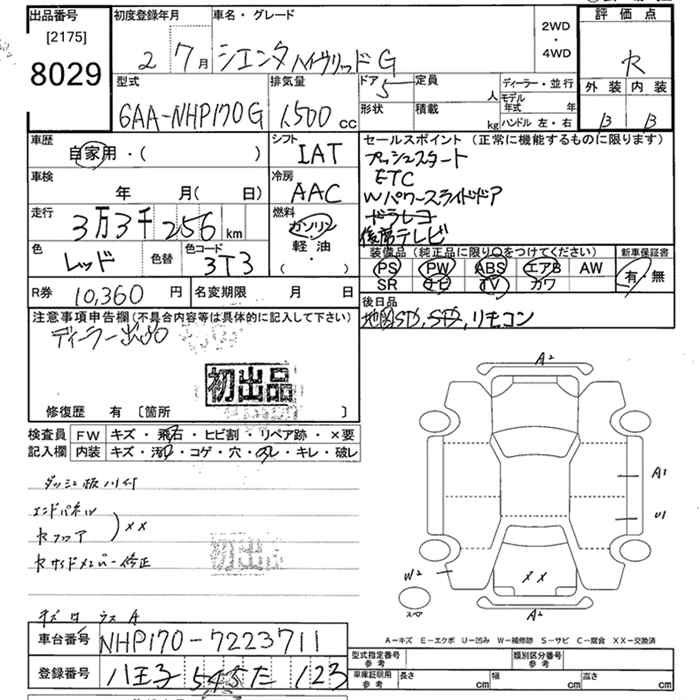 出品番号
[2175]
8029
初度登録年月
2 7月
車名・グレード
シエンタ ハイブリッド G
2WD
・
4WD
評価点
R
外装 内装
B B
型式
6AA-NHP170G
排気量
1,500 cc
ドア 5
形状
定員 人
積載 kg
ディーラー・並行
モデル年式 年
ハンドル 左・右
車歴
自家用・( )
シフト
IAT
車検
年 月( 日)
冷房
AAC
走行
3万3千256 km
燃料
ガソリン
軽油
( ・ )
色
レッド
色替
色コード
3T3
R券 10,360 円
名変期限 月 日
セールスポイント(正常に機能するものに限ります)
プッシュスタート
ETC
Wパワースライドドア
ドラレコ
後席テレビ
装備品(純正品に限り〇をつけてください)
PS PW ABS エアB AW
SR ナビ TV カワ
新車保証書
有・無
後日品
地図SD, STD, リモコン
注意事項申告欄(不具合内容等は具体的に記入して下さい)
ディーラー出品
初出品
修復歴 有 [箇所 ]
検査員
記入欄
FW キズ・飛石・ヒビ割・リペア跡・×要
内装 キズ・汚れ・コゲ・穴・スレ・キレ・破レ
エンドパネル
Rフロア
××
Rサイドメンバー修正
A2
A1
U1
W2
××
A2
スペア
A-キズ E-エクボ U-凹み W-補修跡 S-サビ C-腐食 XX-交換済
車台番号
NHP170-7223711
登録番号
八王子 545 た 123
型式指定番号
参考
類別区分番号
参考
車庫証明用
参考
長さ cm
幅 cm
高さ cm